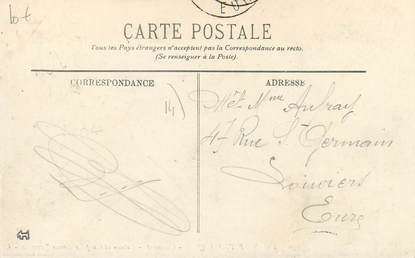 lot
EURE
CARTE POSTALE
Tous les Pays étrangers n'acceptent pas la Correspondance au recto.
(Se renseigner à la Poste).
CORRESPONDANCE
ADRESSE
14)
Mme Aubray
47 Rue St Germain
Louviers
Eure